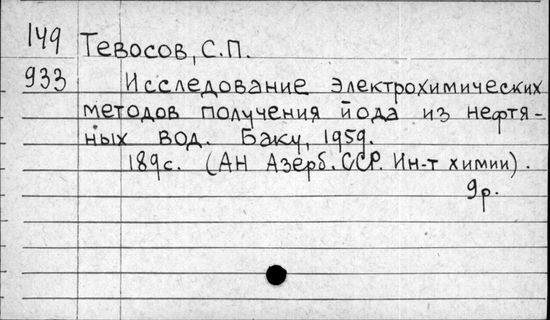 149 Тевосов, С.П.
933 Исследование электрохимических
методов получения йода из нефтя-
ных вод. Баку, 1959.
189с. (АН Азерб. ССР. Ин-т химии).
9р.